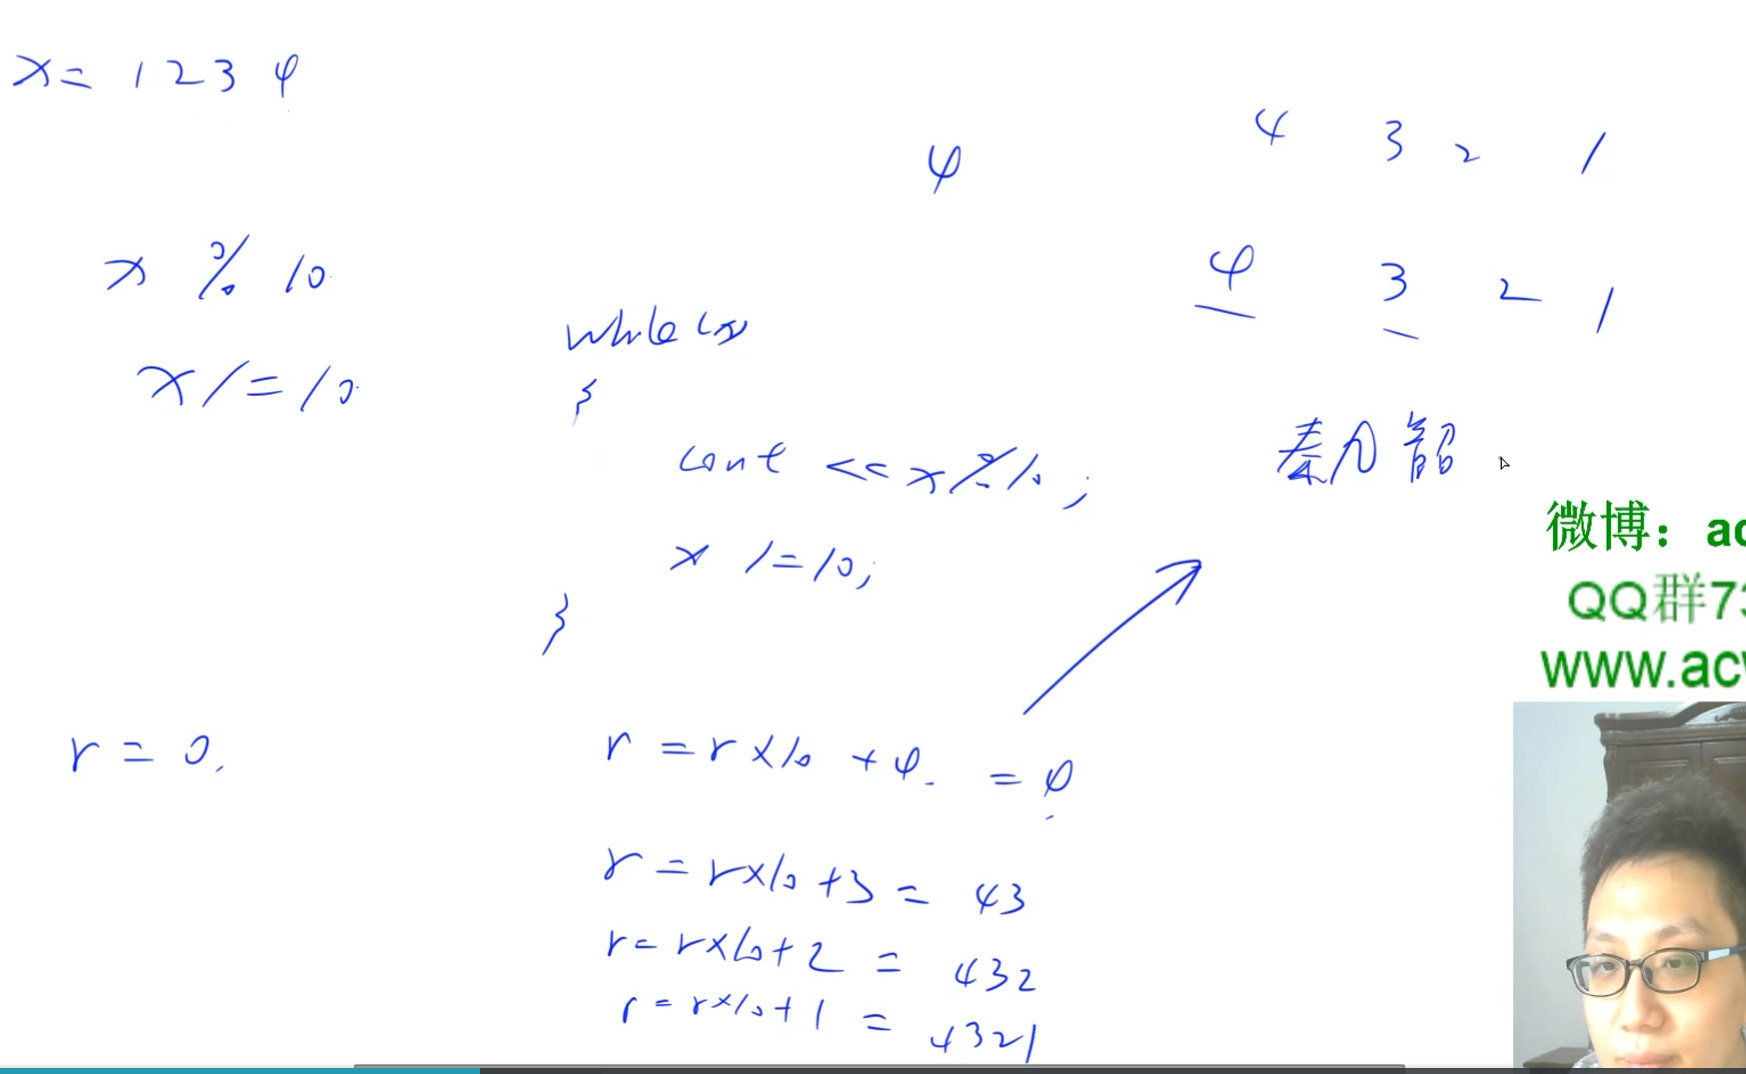 x = 1234
4
4 3 2 1
x % 10
x /= 10
while (x)
{
cout << x % 10;
x /= 10;
}
4 3 2 1
秦九韶
微博：ac
QQ群73
www.acw
r = 0.
r = r × 10 + 4. = 4
r = r × 10 + 3 = 43
r = r × 10 + 2 = 432
r = r × 10 + 1 = 4321